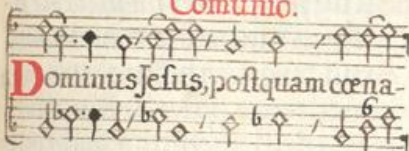 Comunio.
Dominus Jesus, postquam cœna-
6